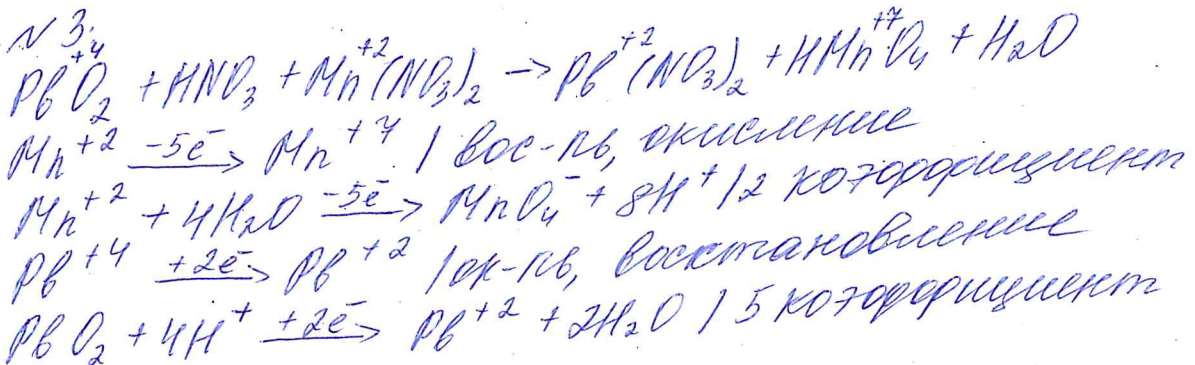 N 3.
Pb⁺⁴O₂ + HNO₃ + Mn⁺²(NO₃)₂ → Pb⁺²(NO₃)₂ + HMn⁺⁷O₄ + H₂O
Mn⁺² -5ē→ Mn⁺⁷ | вос-ль, окисление
Mn⁺² + 4H₂O -5ē→ MnO₄⁻ + 8H⁺ | 2 коэффициент
Pb⁺⁴ +2ē→ Pb⁺² | ок-ль, восстановление
PbO₂ + 4H⁺ +2ē→ Pb⁺² + 2H₂O | 5 коэффициент